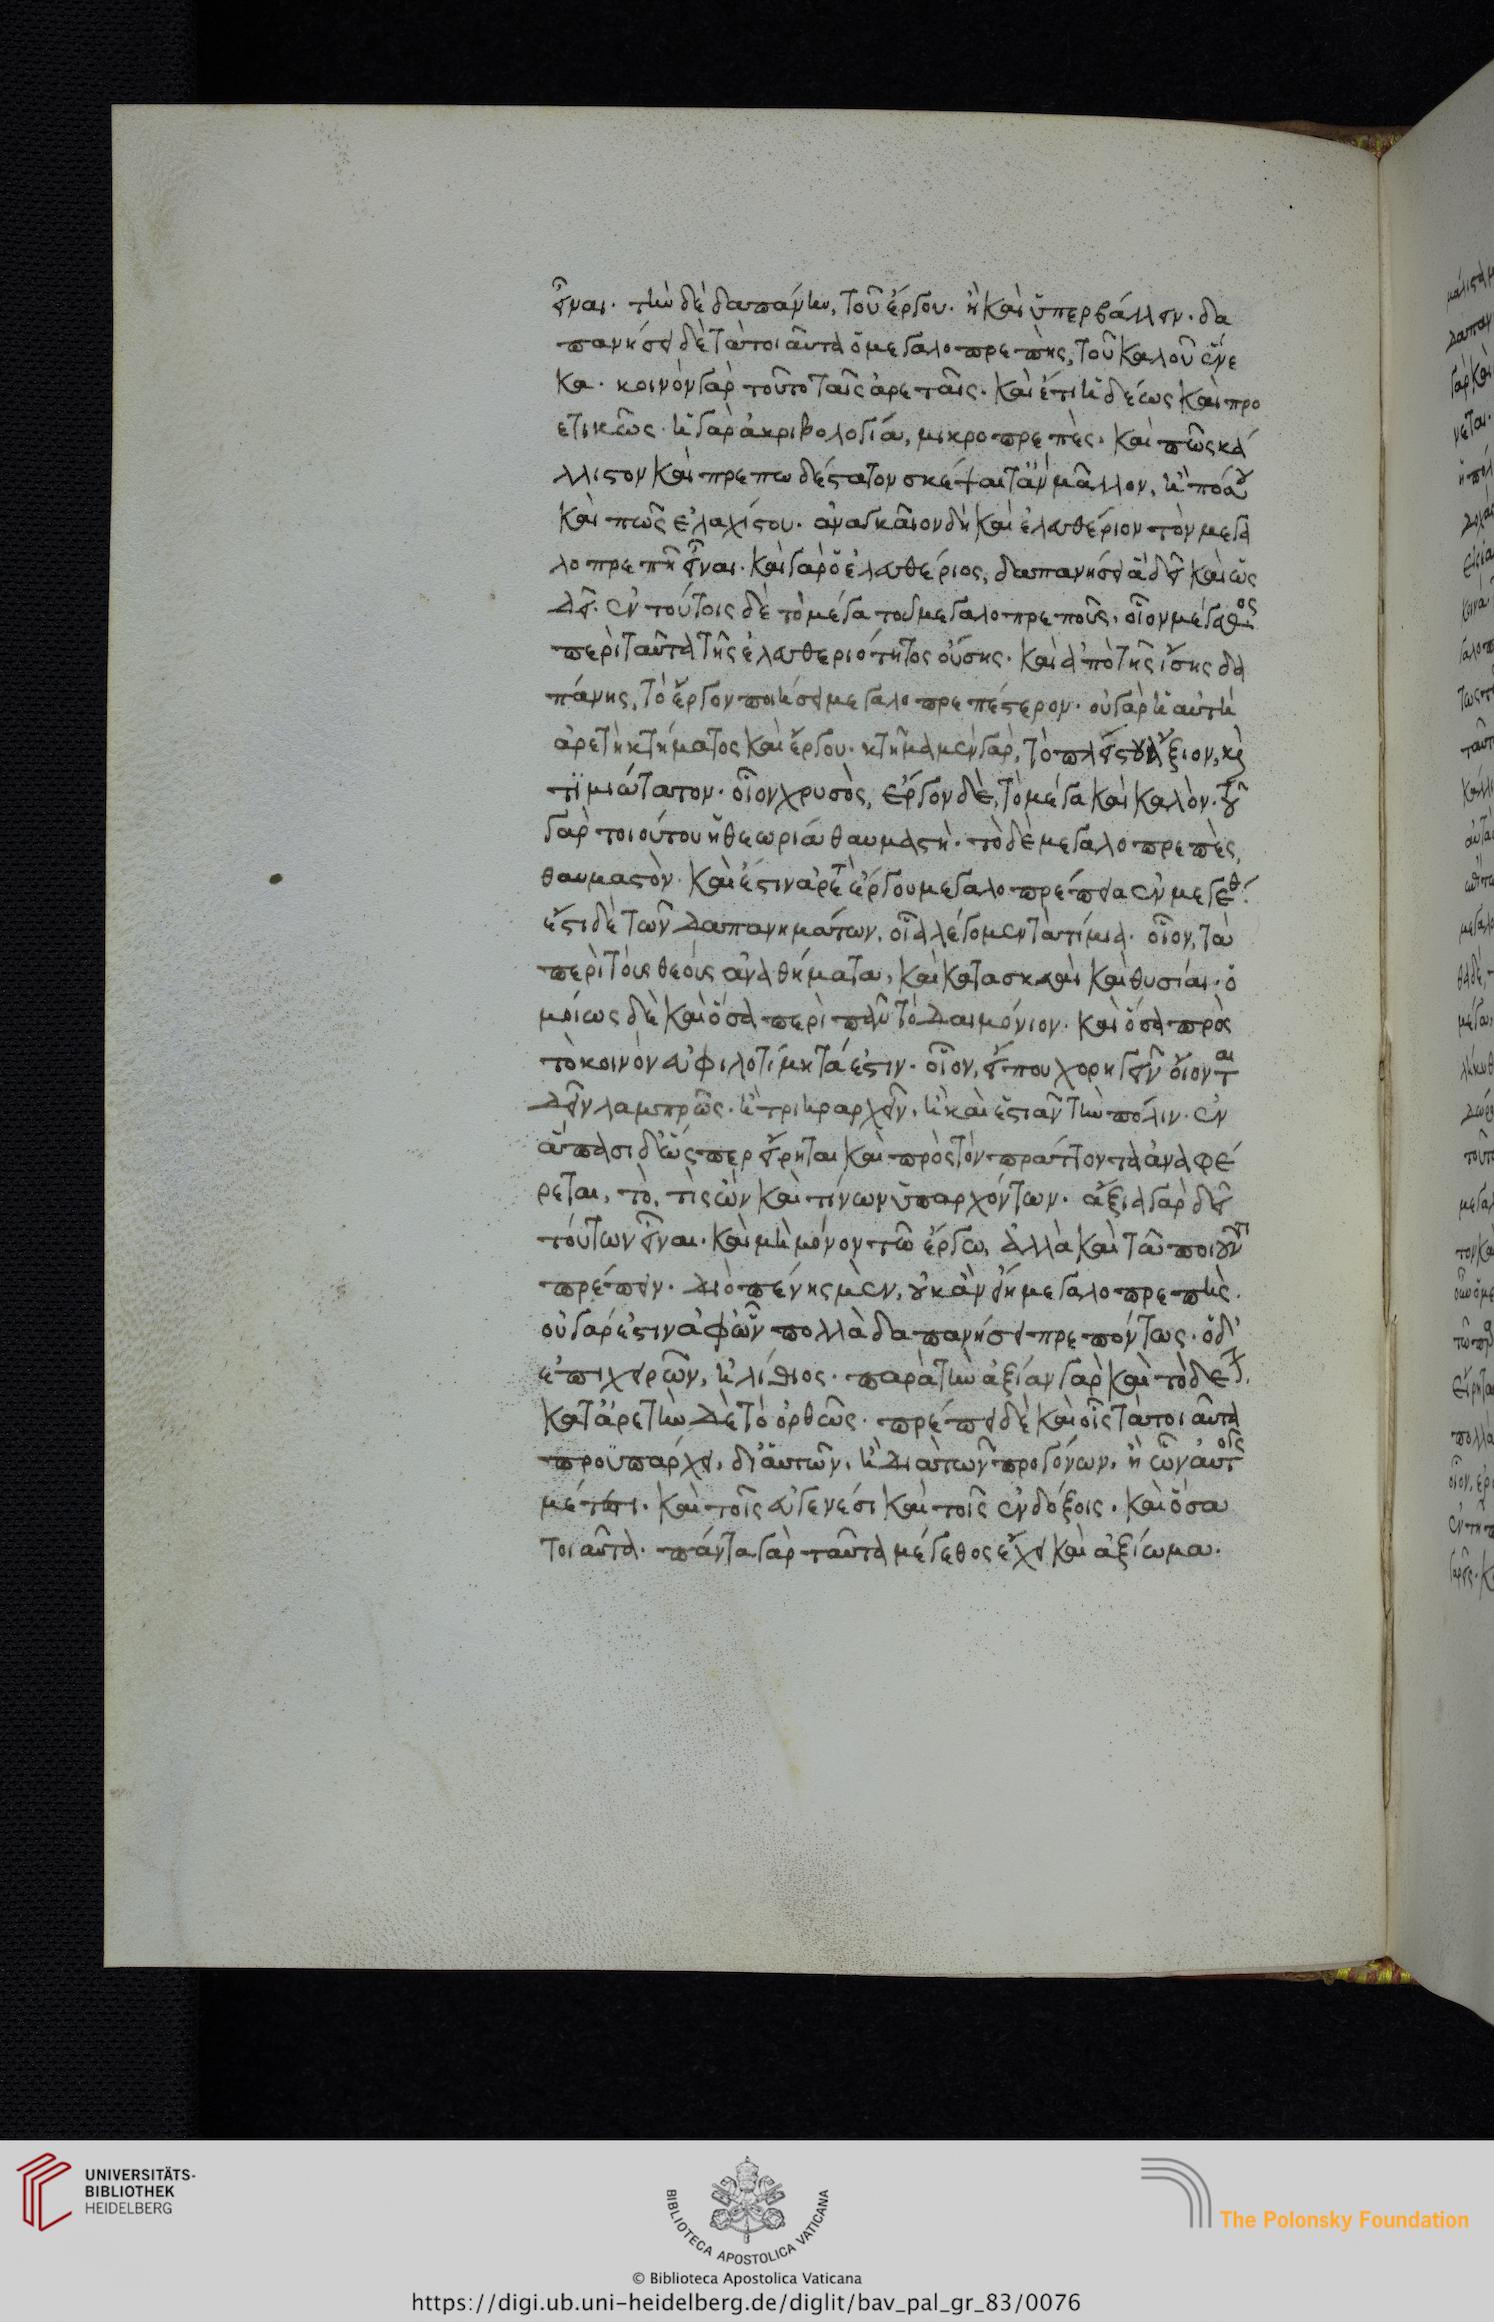 εἶναι. τὴν δὲ δαπάνην, τοῦ ἔργου. ἢ καὶ ὑπερβάλλειν. δα
πανήσει δὲ τὰ τοιαῦτα ὁ μεγαλοπρεπὴς, τοῦ καλοῦ ἕνε
κα. κοινὸν γὰρ τοῦτο ταῖς ἀρεταῖς. καὶ ἔτι ἡδέως καὶ προ
ετικῶς. ἡ γὰρ ἀκριβολογία, μικροπρεπὲς. καὶ πῶς κά
λλιστον καὶ πρεπωδέστατον σκέψαιτ ἂν μᾶλλον, ἢ πόσου
καὶ πῶς ἐλαχίστου. ἀναγκαῖον δὴ καὶ ἐλευθέριον τὸν μεγα
λοπρεπῆ εἶναι. καὶ γὰρ ὁ ἐλευθέριος, δαπανήσει ἃ δεῖ καὶ ὡς
δεῖ. ἐν τούτοις δὲ τὸ μέγα τοῦ μεγαλοπρεποῦς, οἷον μέγεθος
περὶ ταῦτα τῆς ἐλευθεριότητος οὔσης. καὶ ἀπὸ τῆς ἴσης δα
πάνης, τὸ ἔργον ποιήσει μεγαλοπρεπέστερον. οὐ γὰρ ἡ αὐτὴ
ἀρετὴ κτήματος καὶ ἔργου. κτῆμα μὲν γὰρ, τὸ πλείστου ἄξιον, καὶ
τιμιώτατον. οἷον χρυσὸς, ἔργον δὲ, τὸ μέγα καὶ καλὸν. τοῦ
γὰρ τοιούτου ἡ θεωρία θαυμαστὴ. τὸ δὲ μεγαλοπρεπὲς,
θαυμαστὸν. καὶ ἔστιν ἀρετὴ ἔργου μεγαλοπρέπεια ἐν μεγέθει.
ἔστι δὲ τῶν δαπανημάτων, οἷα λέγομεν τὰ τίμια. οἷον, τὰ
περὶ τοὺς θεοὺς ἀναθήματα, καὶ κατασκευαὶ καὶ θυσίαι. ὁ
μοίως δὲ καὶ ὅσα περὶ πᾶν τὸ δαιμόνιον. καὶ ὅσα πρὸς
τὸ κοινὸν εὐφιλοτίμητά ἐστιν. οἷον, εἴ που χορηγεῖν οἴονται
δεῖν λαμπρῶς. ἢ τριηραρχεῖν, ἢ καὶ ἑστιᾶν τὴν πόλιν. ἐν
ἅπασι δ' ὥσπερ εἴρηται καὶ πρὸς τὸν πράττοντα ἀναφέ
ρεται, τὸ, τὶς ὢν καὶ τίνων ὑπαρχόντων. ἄξια γὰρ δεῖ
τούτων εἶναι. καὶ μὴ μόνον τῶ ἔργω, ἀλλὰ καὶ τῶ ποιοῦντι
πρέπειν. διὸ πένης μὲν, οὐκ ἂν εἴη μεγαλοπρεπὴς.
οὐ γάρ ἐστιν ἀφ ὧν πολλὰ δαπανήσει πρεπόντως. ὁ δ'
ἐπιχειρῶν, ἠλίθιος. παρὰ τὴν ἀξίαν γὰρ καὶ τὸ δέον.
κατ ἀρετὴν δὲ τὸ ὀρθῶς. πρέπει δὲ καὶ οἷς τὰ τοιαῦτα
προϋπάρχει, δι αὑτῶν, ἢ διὰ τῶν προγόνων, ἢ ὧν αὐτοῖς
μέτεστι. καὶ τοῖς εὐγενέσι καὶ τοῖς ἐνδόξοις. καὶ ὅσα
τοιαῦτα. πάντα γὰρ ταῦτα μέγεθος ἔχει καὶ ἀξίωμα.
UNIVERSITÄTS-
BIBLIOTHEK
HEIDELBERG
BIBLIOTECA APOSTOLICA VATICANA
© Biblioteca Apostolica Vaticana
The Polonsky Foundation
https://digi.ub.uni-heidelberg.de/diglit/bav_pal_gr_83/0076